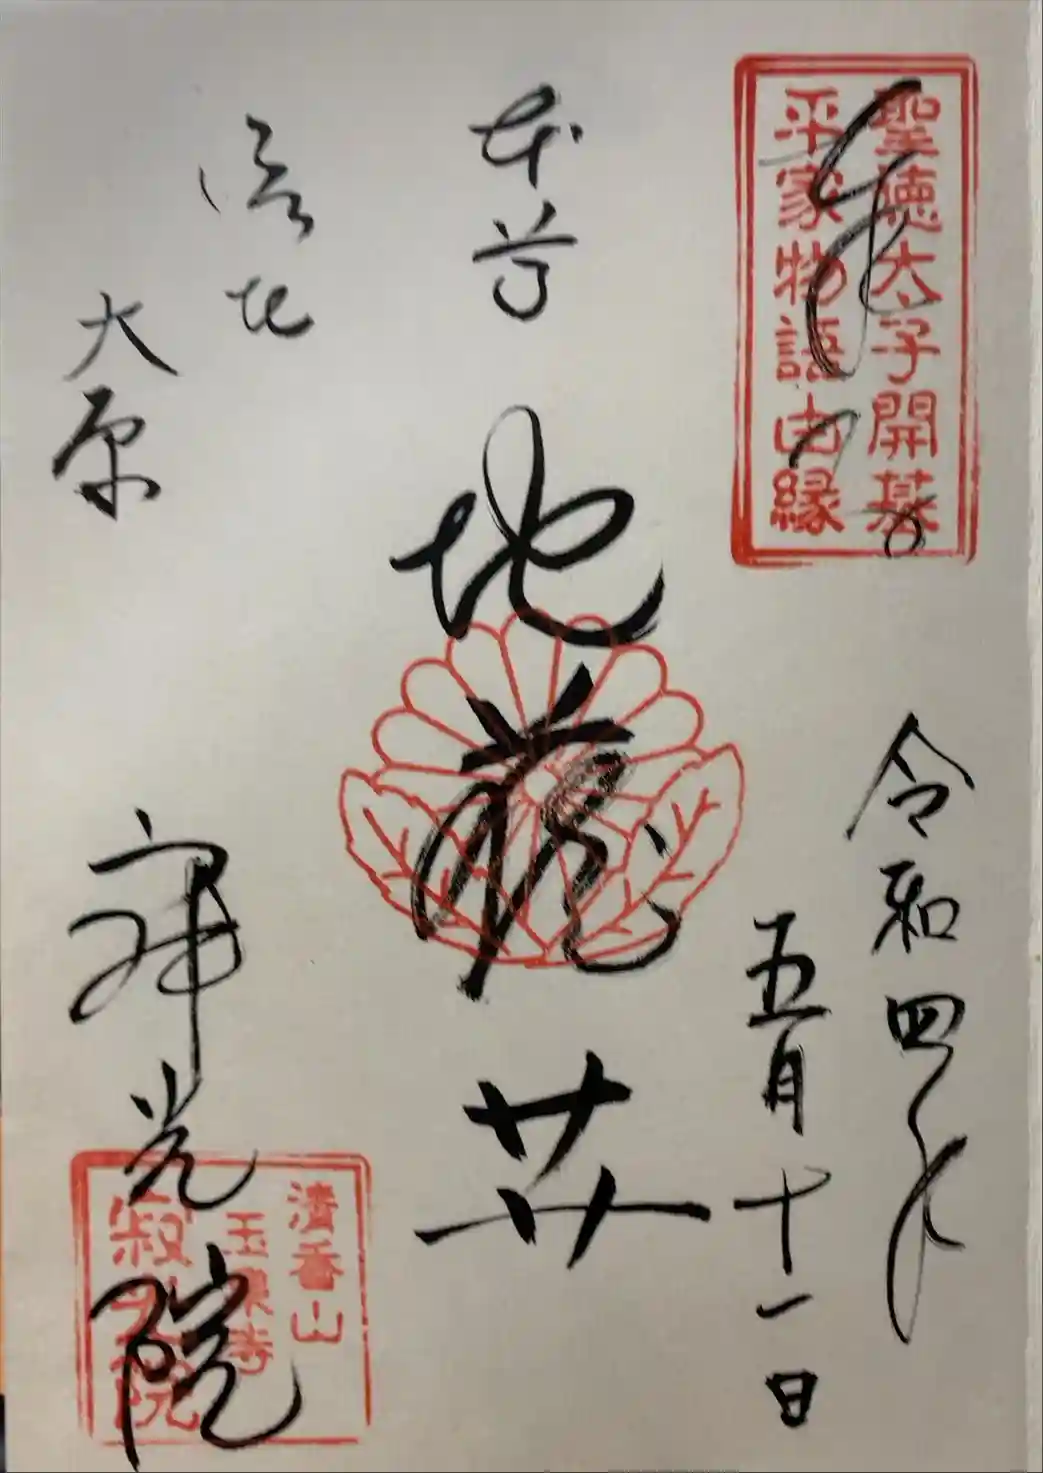 聖徳大子開基
平家物語由縁
奉拝
令和四年
五月十一日
本尊
地蔵
洛北
大原
寂光院
清香山
玉泉寺
寂光院